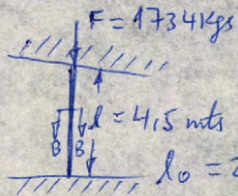 F = 1734 Kgs
l = 4,5 mts
B B
l₀ = 2